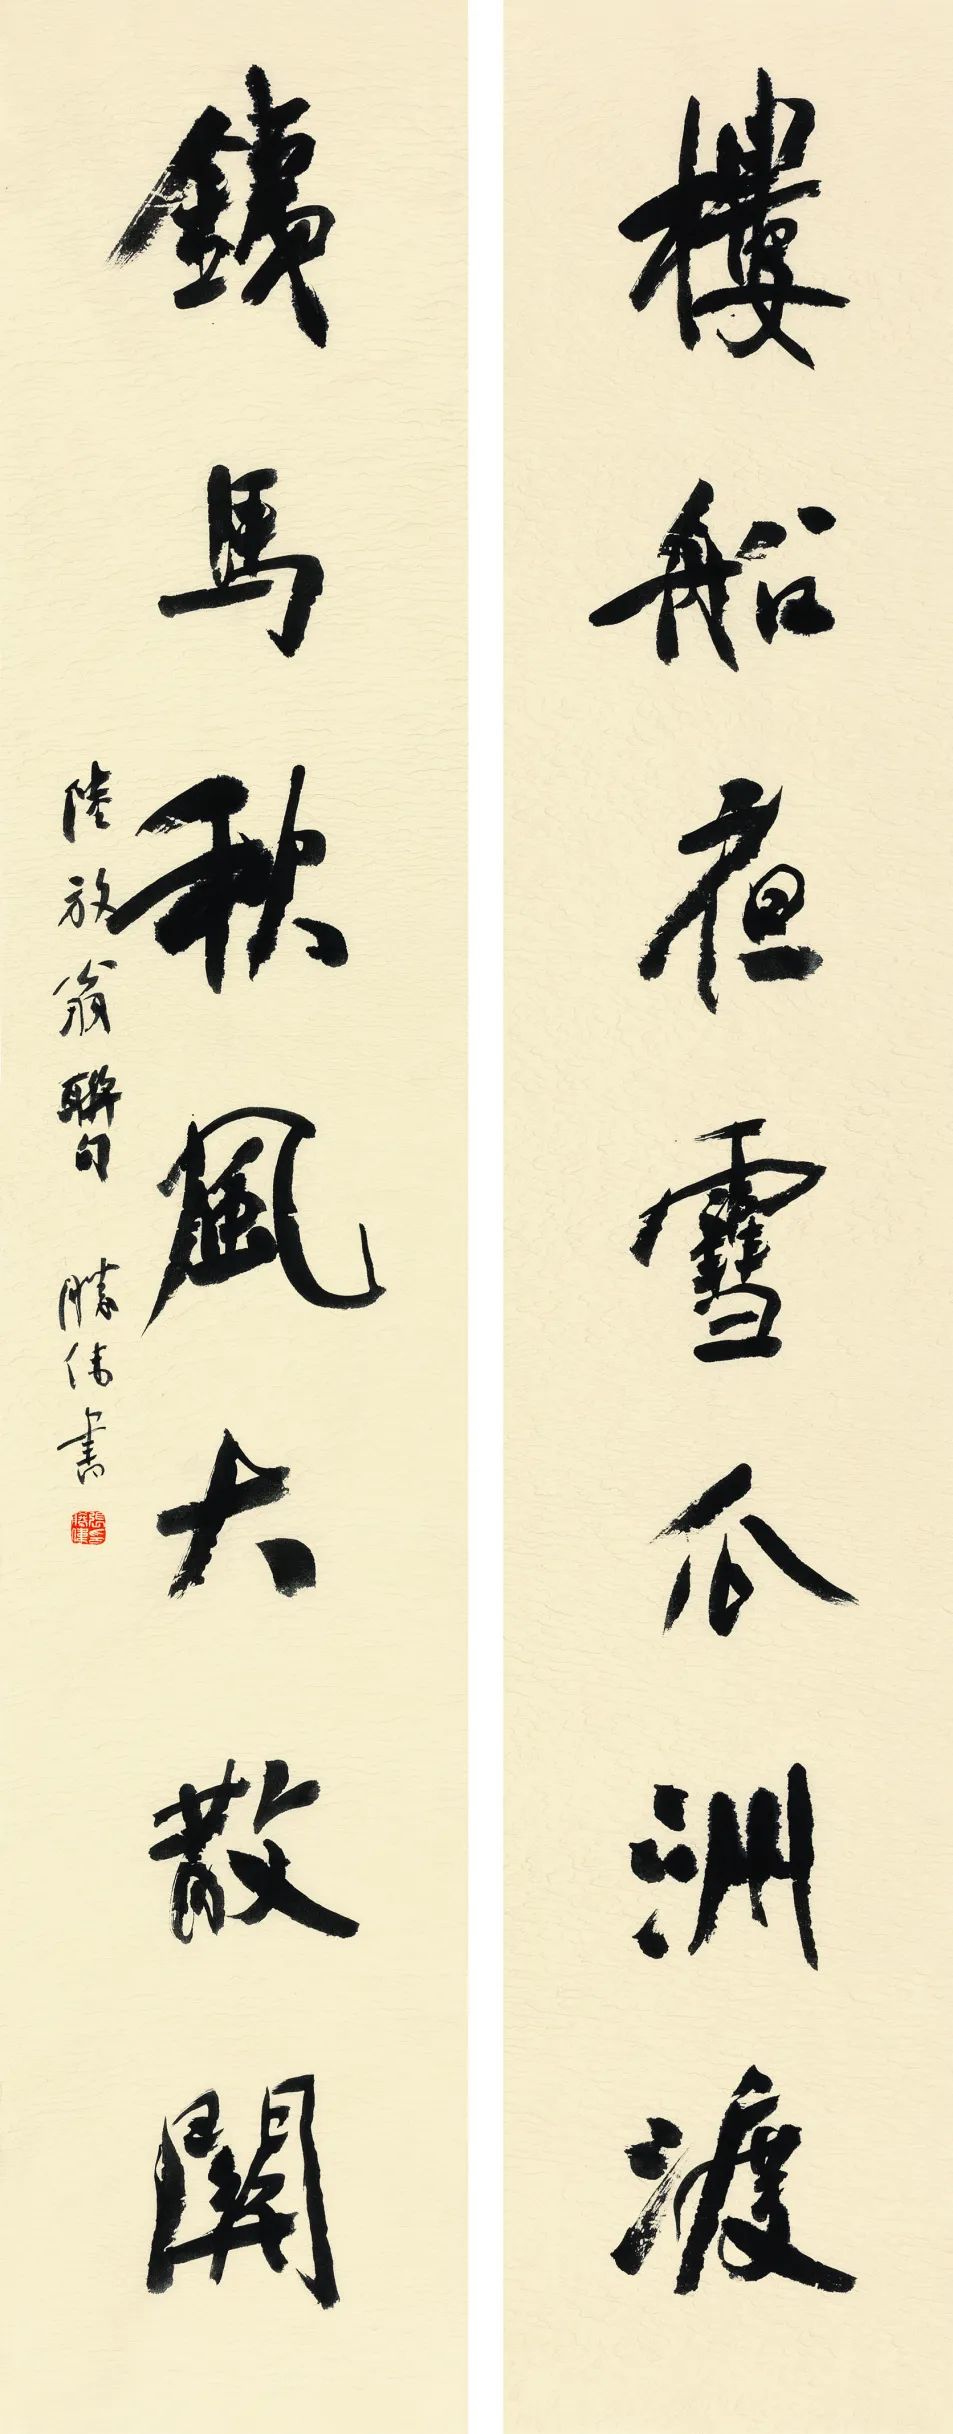 樓船夜雪瓜洲渡
銕馬秋風大散關
陸放翁聯句 勝偉書